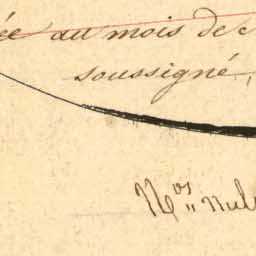 ée au mois de
soussigné,
Nos nul